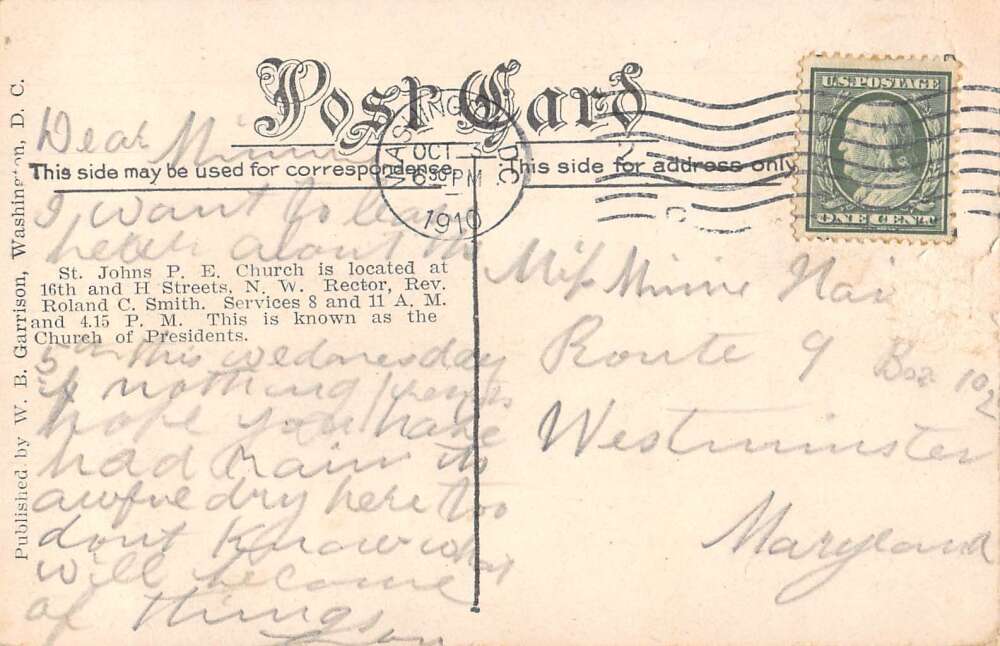 Post Card
This side may be used for correspondence
This side for address only
Published by W. B. Garrison, Washington, D. C.
U.S. POSTAGE
ONE CENT
WASHINGTON
D.C.
OCT 3
6 30 PM
1910
Dear Minnie
I want to
about
St. Johns P. E. Church is located at
16th and H Streets, N. W. Rector, Rev.
Roland C. Smith. Services 8 and 11 A. M.
and 4.15 P. M. This is known as the
Church of Presidents.
5th this wednesday
if nothing
hope you have
had rain its
awful dry here too
dont know what
will become
of things
Miss Minnie
Route 9 Box 102
Westminster
Maryland